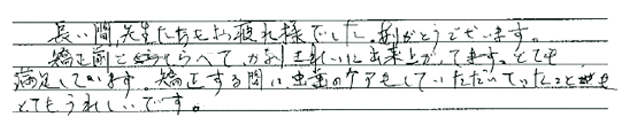 長い間、先生たちもお疲れ様でした。ありがとうございます。
矯正前とくらべて、かなりきれいに出来上がってます。とても
満足しています。矯正する間に虫歯のケアもしていただいていたことも
とてもうれしいです。